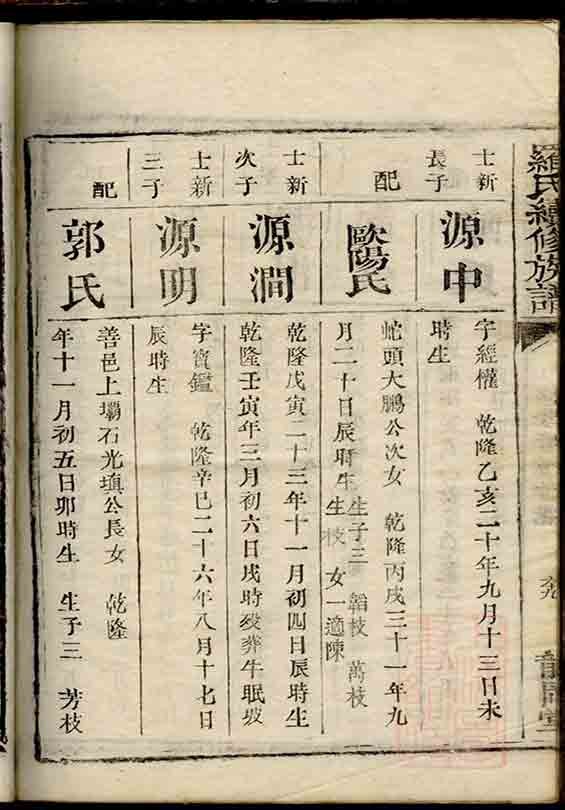 羅氏續修族譜
士新
長子
源中
字經權　乾隆乙亥二十年九月十三日未
時生
配
歐陽氏
蛇頭大鵬公次女　乾隆丙戌三十一年九
月二十日辰時生　生子三　韜枝　萬枝
生枝　女一適陳
士新
次子
源澗
乾隆戊寅二十三年十一月初四日辰時生
乾隆壬寅年三月初六日戌時歿葬牛眠坡
士新
三子
源明
字寶鑑　乾隆辛巳二十六年八月十七日
辰時生
配
郭氏
善邑上壩石光瑱公長女　乾隆
年十一月初五日卯時生　生子三　芳枝